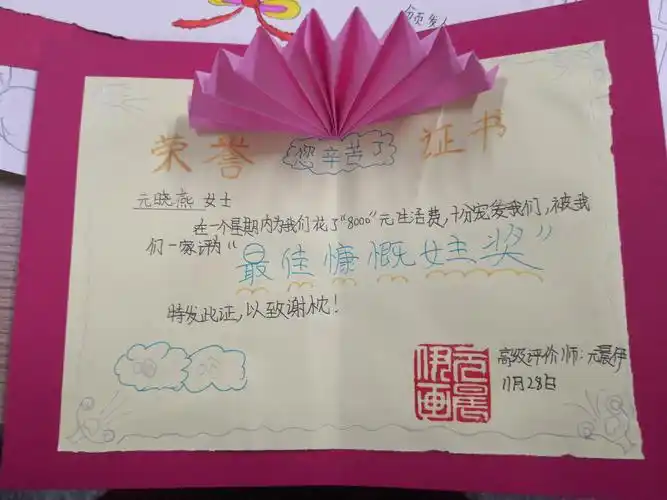 颁发
荣誉 证书
您辛苦了
元晓燕 女士
在一个星期内为我们花了“8000”元生活费，十分宠爱我们，被我
们一家评为“最佳慷慨女主奖”
特发此证，以致谢枕！
高级评价师：元晨伊
11月28日
元晨伊画